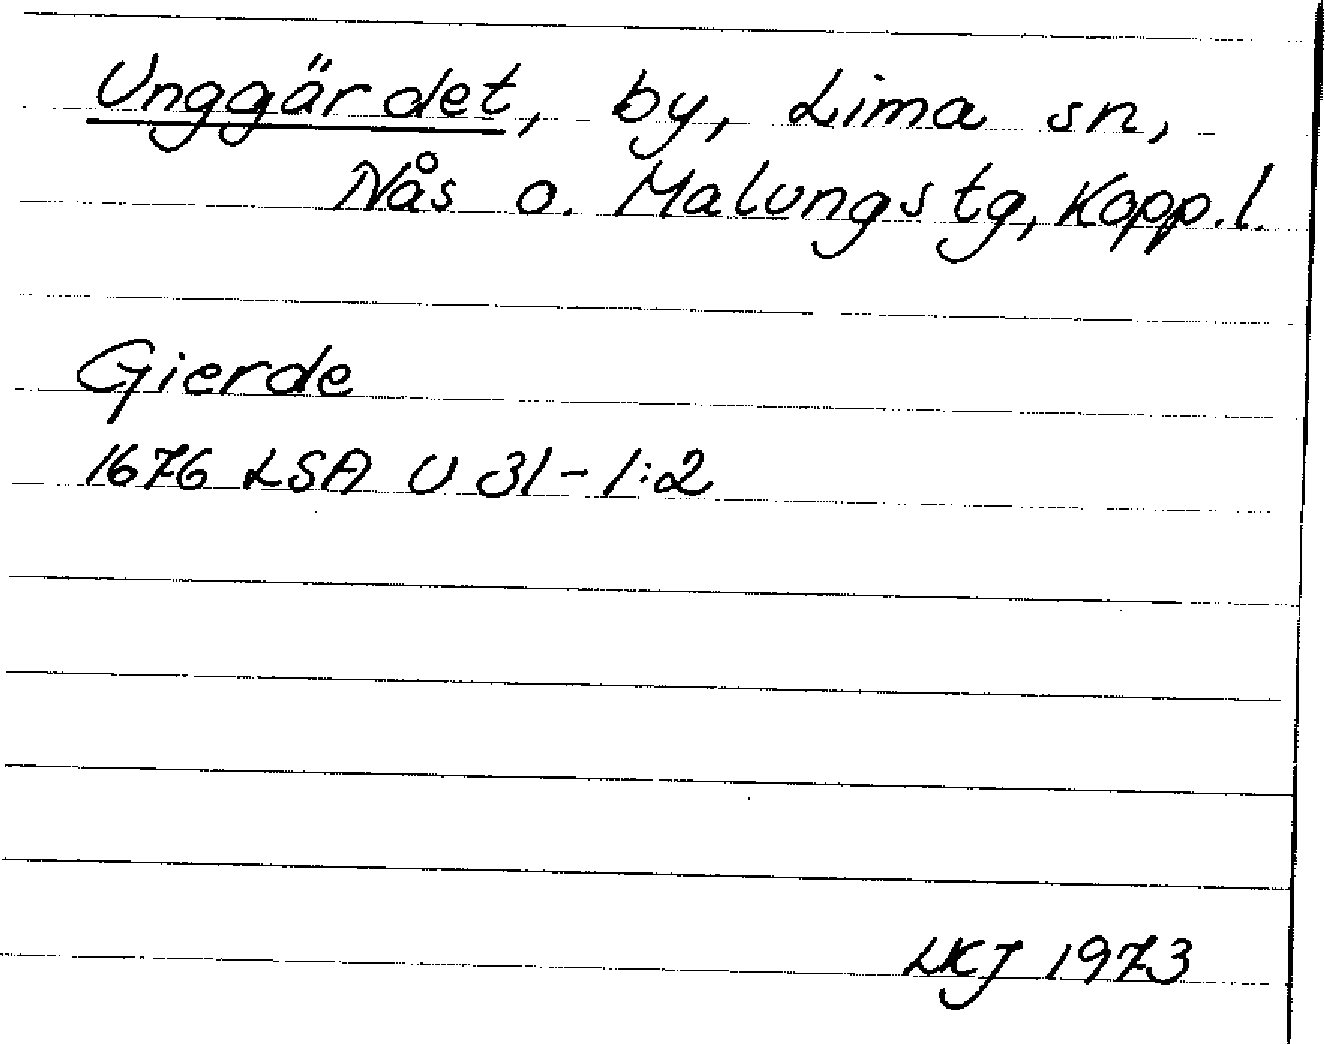 Unggärdet, by, Lima sn,
Nås o. Malungs tg, Kopp.l.
Gierde
1676 LSA U 31-1:2
LKJ 1973